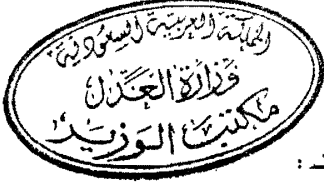 المملكة العربية السعودية
وزارة العدل
مكتب الوزير
: ـد